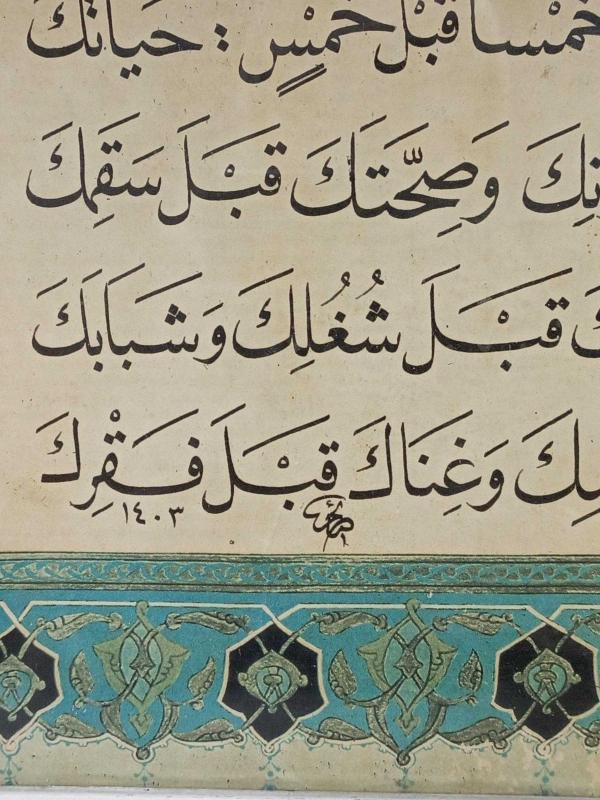 خمسا قبل خمسٍ : حياتك
وَصِحّتَكَ قَبْلَ سَقَمِكَ
قَبْلَ شُغُلِكَ وَشَبَابَكَ
وَغِنَاكَ قَبْلَ فَقْرِكَ
١٤٠٣